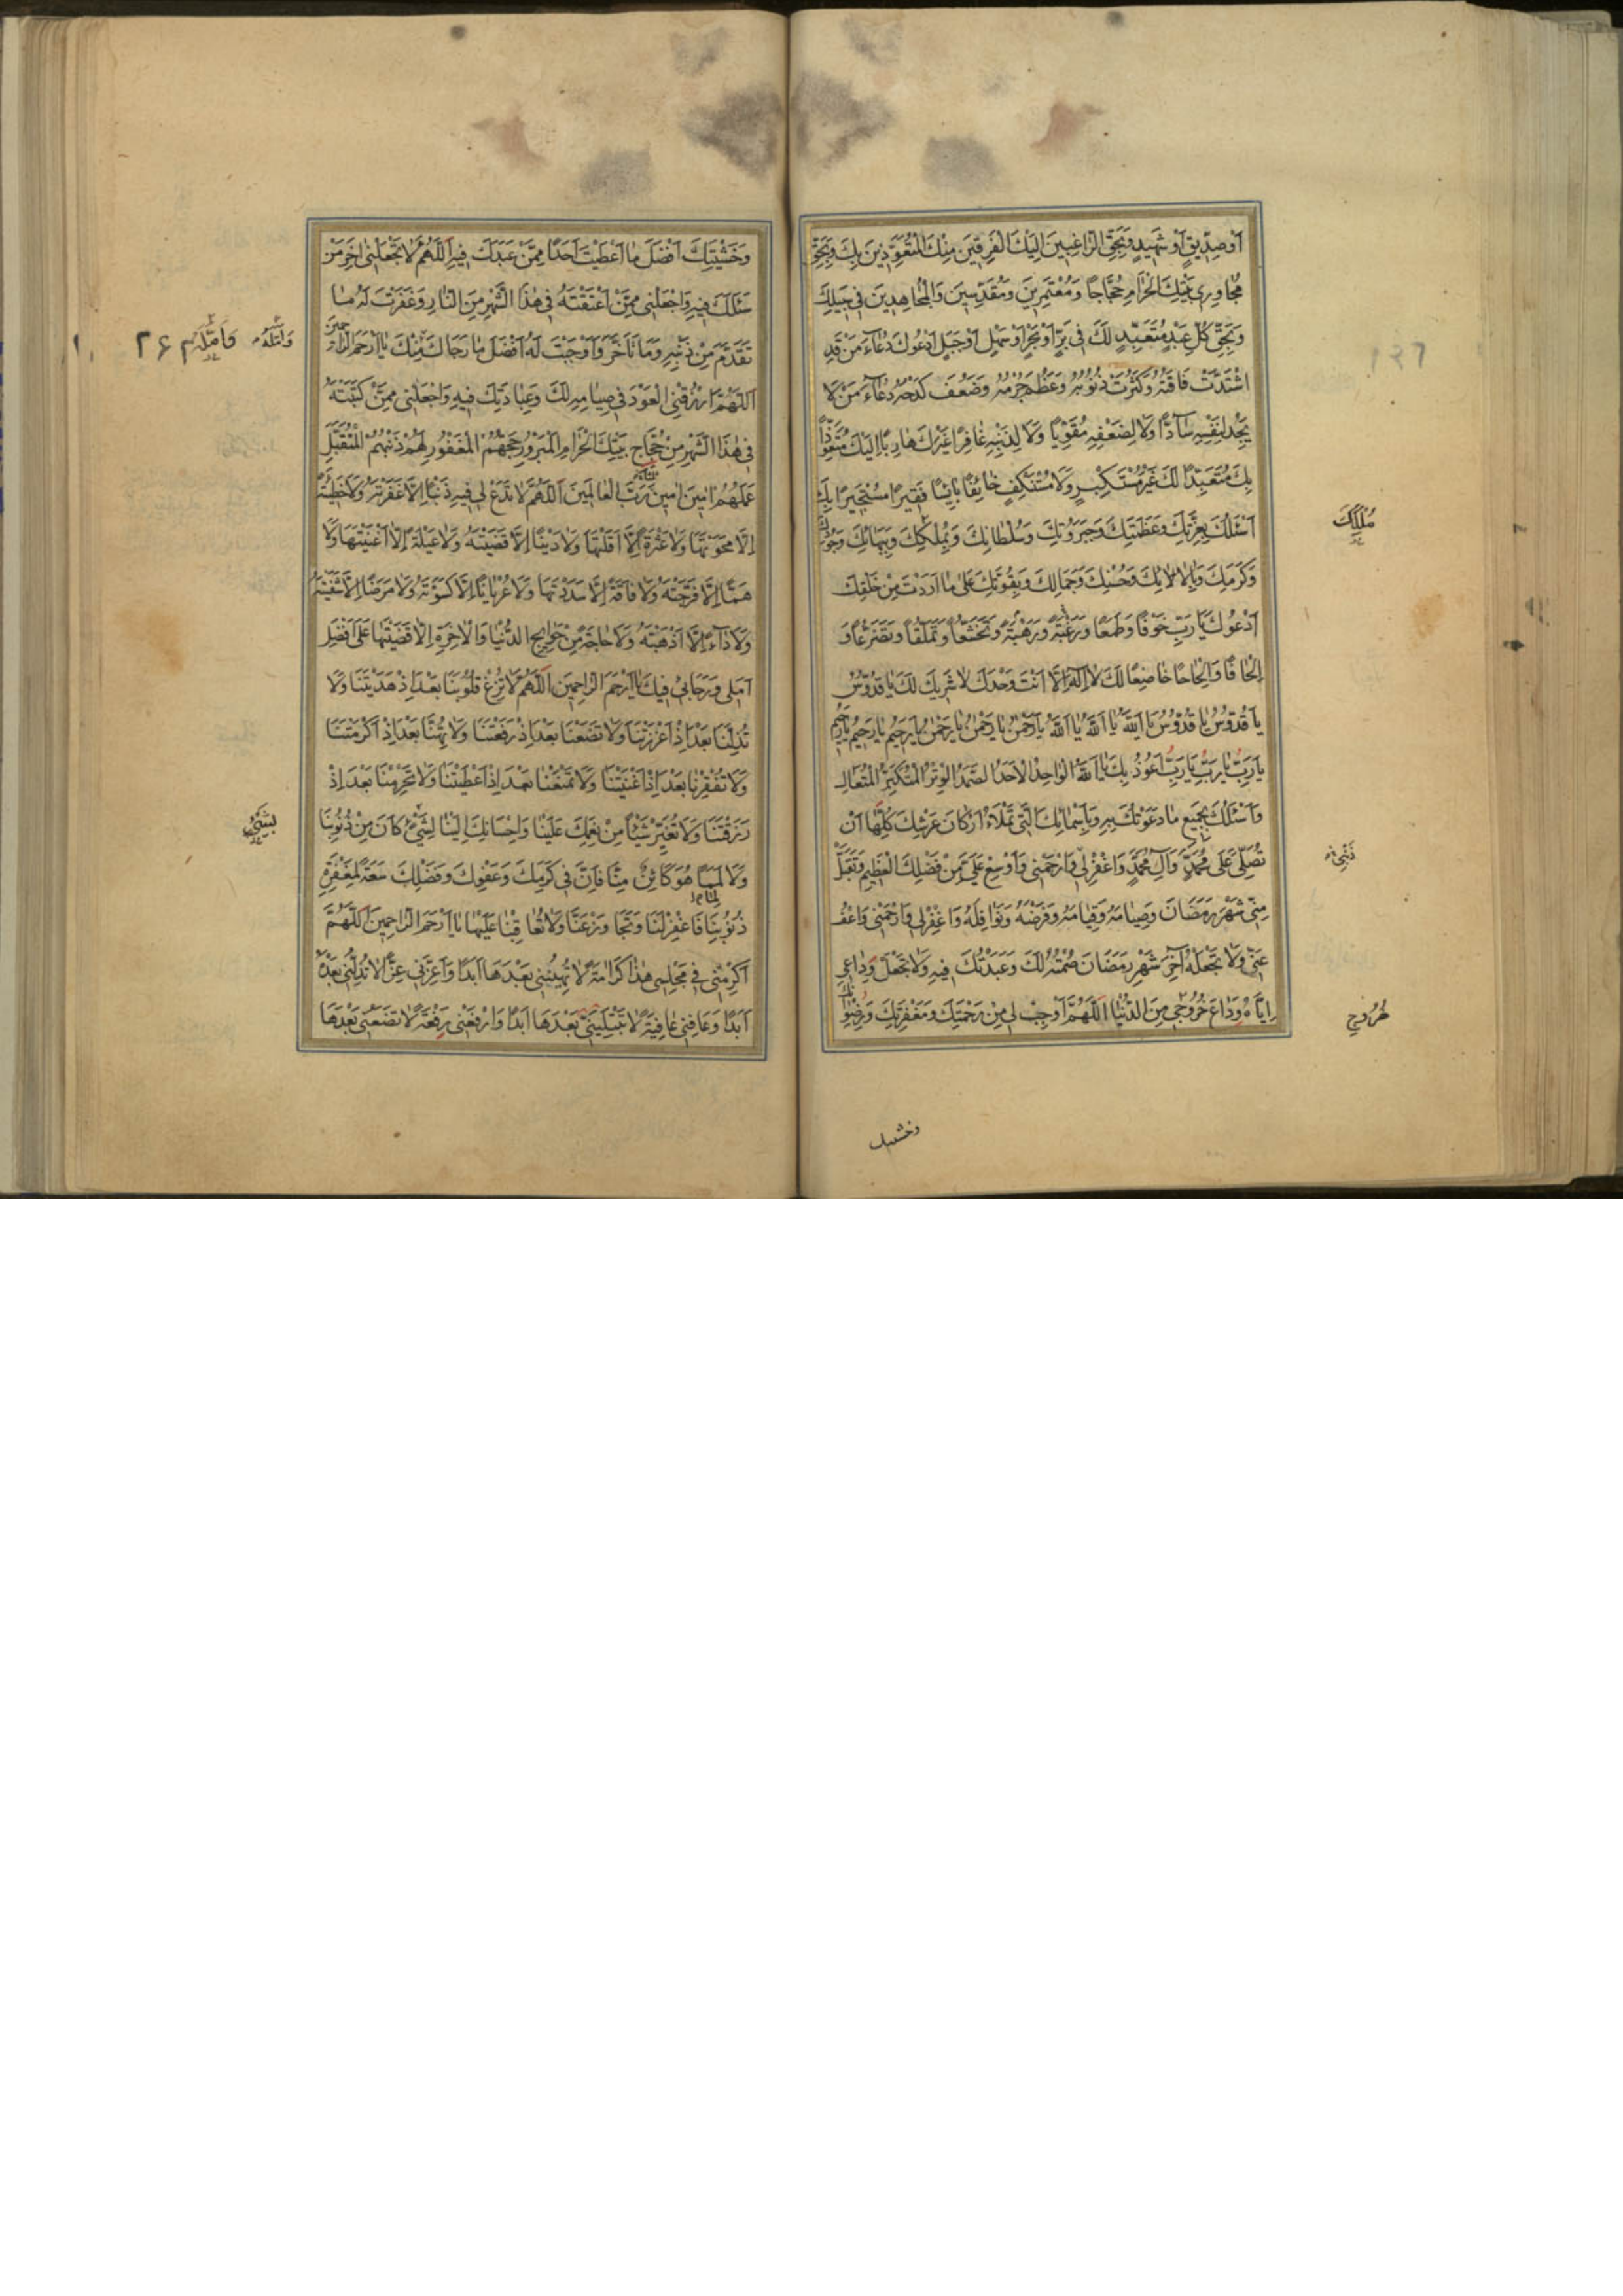 اَوْصِدّيقٍ اَوْ شَهيدٍ وَبِحَقِّ الرّاغِبينَ اِلَيْكَ الْفَرِقينَ مِنْكَ الْمُتَعَوِّذينَ بِكَ وَبِحَقِّ
مُجاوِرى بَيْتِكَ الْحَرامِ حُجّاجاً وَمُعْتَمِرينَ وَمُقَدِّسينَ وَالْمُجاهِدينَ فى سَبيلِكَ
وَبِحَقِّ كُلِّ عَبْدٍ مُتَعَبِّدٍ لَكَ فى بَرٍّ اَوْ بَحْرٍ اَوْ سَهْلٍ اَوْ جَبَلٍ اَدْعُوكَ دُعاءَ مَنْ قَدِ
اشْتَدَّتْ فاقَتُهُ وَكَثُرَتْ ذُنُوبُهُ وَعَظُمَ جُرْمُهُ وَضَعُفَ كَدْحُهُ دُعاءَ مَنْ لا
يَجِدُ لِنَفْسِهِ سادّاً وَلا لِضَعْفِهِ مُقَوِّياً وَلا لِذَنْبِهِ غافِراً غَيْرَكَ هارِباً اِلَيْكَ مُتَعَوِّذاً
بِكَ مُتَعَبِّداً لَكَ غَيْرَ مُسْتَكْبِرٍ وَلا مُسْتَنْكِفٍ خائِفاً بائِساً فَقيراً مُسْتَجيراً بِكَ
اَسْئَلُكَ بِعِزَّتِكَ وَعَظَمَتِكَ وَجَبَرُوتِكَ وَسُلْطانِكَ وَبِمُلْكِكَ وَبِبَهائِكَ وَجُودِكَ
مُلْكِكَ
وَكَرَمِكَ وَبِآلائِكَ وَحُسْنِكَ وَجَمالِكَ وَبِقُوَّتِكَ عَلى ما اَرَدْتَ مِنْ خَلْقِكَ
اَدْعُوكَ يا رَبِّ خَوْفاً وَطَمَعاً وَرَغْبَةً وَرَهْبَةً وَتَخَشُّعاً وَتَمَلُّقاً وَتَضَرُّعاً وَ
اِلْحافاً وَاِلْحاحاً خاضِعاً لَكَ لا اِلهَ اِلّا اَنْتَ وَحْدَكَ لا شَريكَ لَكَ يا قُدُّوسُ
يا قُدُّوسُ يا قُدُّوسُ يا اَللهُ يا اَللهُ يا اَللهُ يا رَحْمنُ يا رَحْمنُ يا رَحْمنُ يا رَحيمُ يا رَحيمُ يا رَحيمُ
يا رَبِّ يا رَبِّ يا رَبِّ اَعُوذُ بِكَ يا اَللهُ الْواحِدُ الْاَحَدُ الصَّمَدُ الْوِتْرُ الْمُتَكَبِّرُ الْمُتَعالِ
وَاَسْئَلُكَ بِجَميعِ ما دَعَوْتُكَ بِهِ وَبِاَسْمائِكَ الَّتى تَمْلَاُ اَرْكانَ عَرْشِكَ كُلَّها اَنْ
تُصَلِّىَ عَلى مُحَمَّدٍ وَآلِ مُحَمَّدٍ وَاغْفِرْ لى وَارْحَمْنى وَاَوْسِعْ عَلَىَّ مِنْ فَضْلِكَ الْعَظيمِ وَتَقَبَّلْ
مِنّى شَهْرَ رَمَضانَ وَصِيامَهُ وَقِيامَهُ وَفَرْضَهُ وَنَوافِلَهُ وَاغْفِرْ لى وَارْحَمْنى وَاعْفُ
عَنّى وَلا تَجْعَلْهُ آخِرَ شَهْرِ رَمَضانَ صُمْتُهُ لَكَ وَعَبَدْتُكَ فيهِ وَلا تَجْعَلْ وَداعى
اِيّاهُ وَداعَ خُرُوجى مِنَ الدُّنْيا اَللّهُمَّ اَوْجِبْ لى مِنْ رَحْمَتِكَ وَمَغْفِرَتِكَ وَرِضْوانِكَ
وَخَشْيَتِكَ اَفْضَلَ ما اَعْطَيْتَ اَحَداً مِمَّنْ عَبَدَكَ فيهِ اَللّهُمَّ لا تَجْعَلْنى اخِرَ مَنْ
سَئَلَكَ فيهِ وَاجْعَلْنى مِمَّنْ اَعْتَقْتَهُ فى هذَا الشَّهْرِ مِنَ النّارِ وَغَفَرْتَ لَهُ ما
تَقَدَّمَ مِنْ ذَنْبِهِ وَما تَاَخَّرَ وَاَوْجَبْتَ لَهُ اَفْضَلَ ما رَجاكَ مِنْكَ يا اَرْحَمَ الرّاحِمينَ
اَللّهُمَّ ارْزُقْنِى الْعَوْدَ فى صِيامِهِ لَكَ وَعِبادَتِكَ فيهِ وَاجْعَلْنى مِمَّنْ كَتَبْتَهُ
فى هذَا الشَّهْرِ مِنْ حُجّاجِ بَيْتِكَ الْحَرامِ الْمَبْرُورِ حَجُّهُمْ الْمَغْفُورِ لَهُمْ ذَنْبُهُمُ الْمُتَقَبَّلِ
عَمَلُهُمْ امينَ امينَ رَبَّ الْعالَمينَ اَللّهُمَّ لا تَدَعْ لى فيهِ ذَنْباً اِلّا غَفَرْتَهُ وَلا خَطيئَةً
اِلّا مَحَوْتَها وَلا عَثْرَةً اِلّا اَقَلْتَها وَلا دَيْناً اِلّا قَضَيْتَهُ وَلا عَيْلَةً اِلّا اَغْنَيْتَها وَلا
هَمّاً اِلّا فَرَّجْتَهُ وَلا فاقَةً اِلّا سَدَدْتَها وَلا عُرْياناً اِلّا كَسَوْتَهُ وَلا مَرَضاً اِلّا شَفَيْتَهُ
وَلا داءً اِلّا اَذْهَبْتَهُ وَلا حاجَةً مِنْ حَوائِجِ الدُّنْيا وَالْاخِرَةِ اِلّا قَضَيْتَها عَلى اَفْضَلِ
اَمَلى وَرَجائى فيكَ يا اَرْحَمَ الرّاحِمينَ اَللّهُمَّ لا تُزِغْ قُلُوبَنا بَعْدَ اِذْ هَدَيْتَنا وَلا
تُذِلَّنا بَعْدَ اِذْ اَعْزَزْتَنا وَلا تَضَعْنا بَعْدَ اِذْ رَفَعْتَنا وَلا تُهِنّا بَعْدَ اِذْ اَكْرَمْتَنا
وَلا تُفْقِرْنا بَعْدَ اِذْ اَغْنَيْتَنا وَلا تَمْنَعْنا بَعْدَ اِذْ اَعْطَيْتَنا وَلا تَحْرِمْنا بَعْدَ اِذْ
رَزَقْتَنا وَلا تُغَيِّرْ شَيْئاً مِنْ نِعَمِكَ عَلَيْنا وَاِحْسانِكَ اِلَيْنا لِشَىْءٍ كانَ مِنْ ذُنُوبِنا
وَلا لِما هُوَ كائِنٌ مِنّا فَاِنَّ فى كَرَمِكَ وَعَفْوِكَ وَفَضْلِكَ سَعَةً لِمَغْفِرَةِ
ذُنُوبِنا فَاغْفِرْ لَنا وَتَجاوَزْ عَنّا وَلا تُعاقِبْنا عَلَيْها يا اَرْحَمَ الرّاحِمينَ اَللّهُمَّ
اَكْرِمْنى فى مَجْلِسى هذا كَرامَةً لا تُهينُنى بَعْدَها اَبَداً وَاَعِزَّنى عِزّاً لا تُذِلُّنى بَعْدَهُ
اَبَداً وَعافِنى عافِيَةً لا تَبْتَلينى بَعْدَها اَبَداً وَارْفَعْنى رِفْعَةً لا تَضَعُنى بَعْدَها